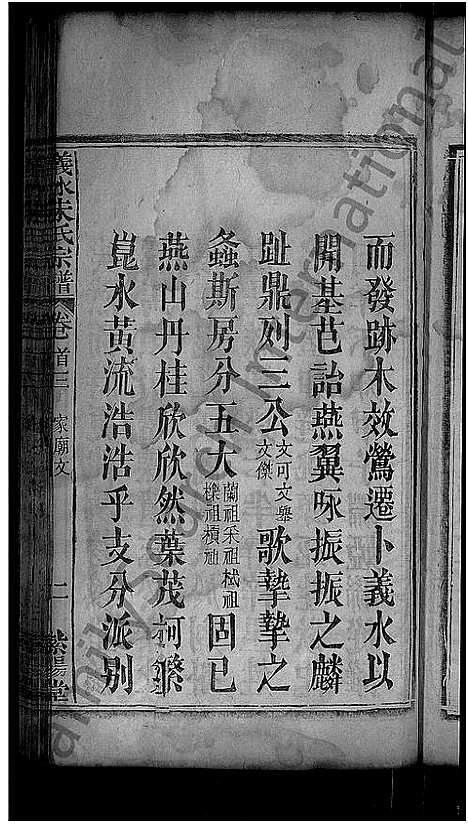 而發跡木效鶯遷卜義水以
開基芑詒燕翼咏振振之麟
趾鼎列三公文可文舉文傑歌摯摯之
螽斯房分五大蘭祖采祖栻祖檪祖積祖固已
燕山丹桂欣欣然葉茂柯繁
崑水黃流浩浩乎支分派別
義水朱氏宗譜 卷首三 家廟文 二 紫陽堂
FamilySearch International